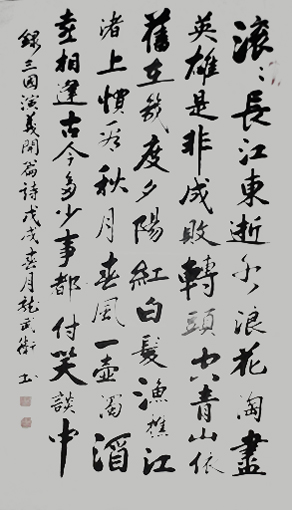 滚〻長江東逝水浪花淘盡
英雄是非成敗轉頭空青山依
舊在幾度夕陽紅白髮漁樵江
渚上慣看秋月春風一壺濁酒
喜相逢古今多少事都付笑談中
錄三國演義開篇詩戊戌春月龍武衛書